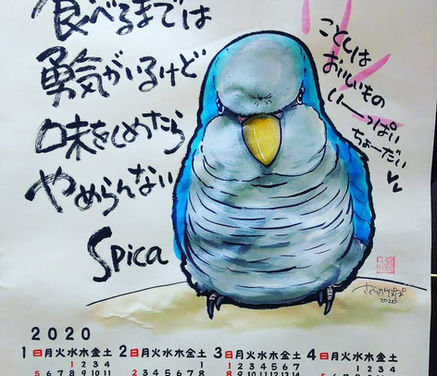 食べるまでは
勇気がいるけど
味をしめたら
やめらんない
Spica
ことしは
おいしいもの
い〜っぱい
ちょーだい
2020
2020
1 日月火水木金土 2 日月火水木金土 3 日月火水木金土 4 日月火水木金土
1 2 3 4 1 1 2 3 4 5 6 7 1 2 3 4